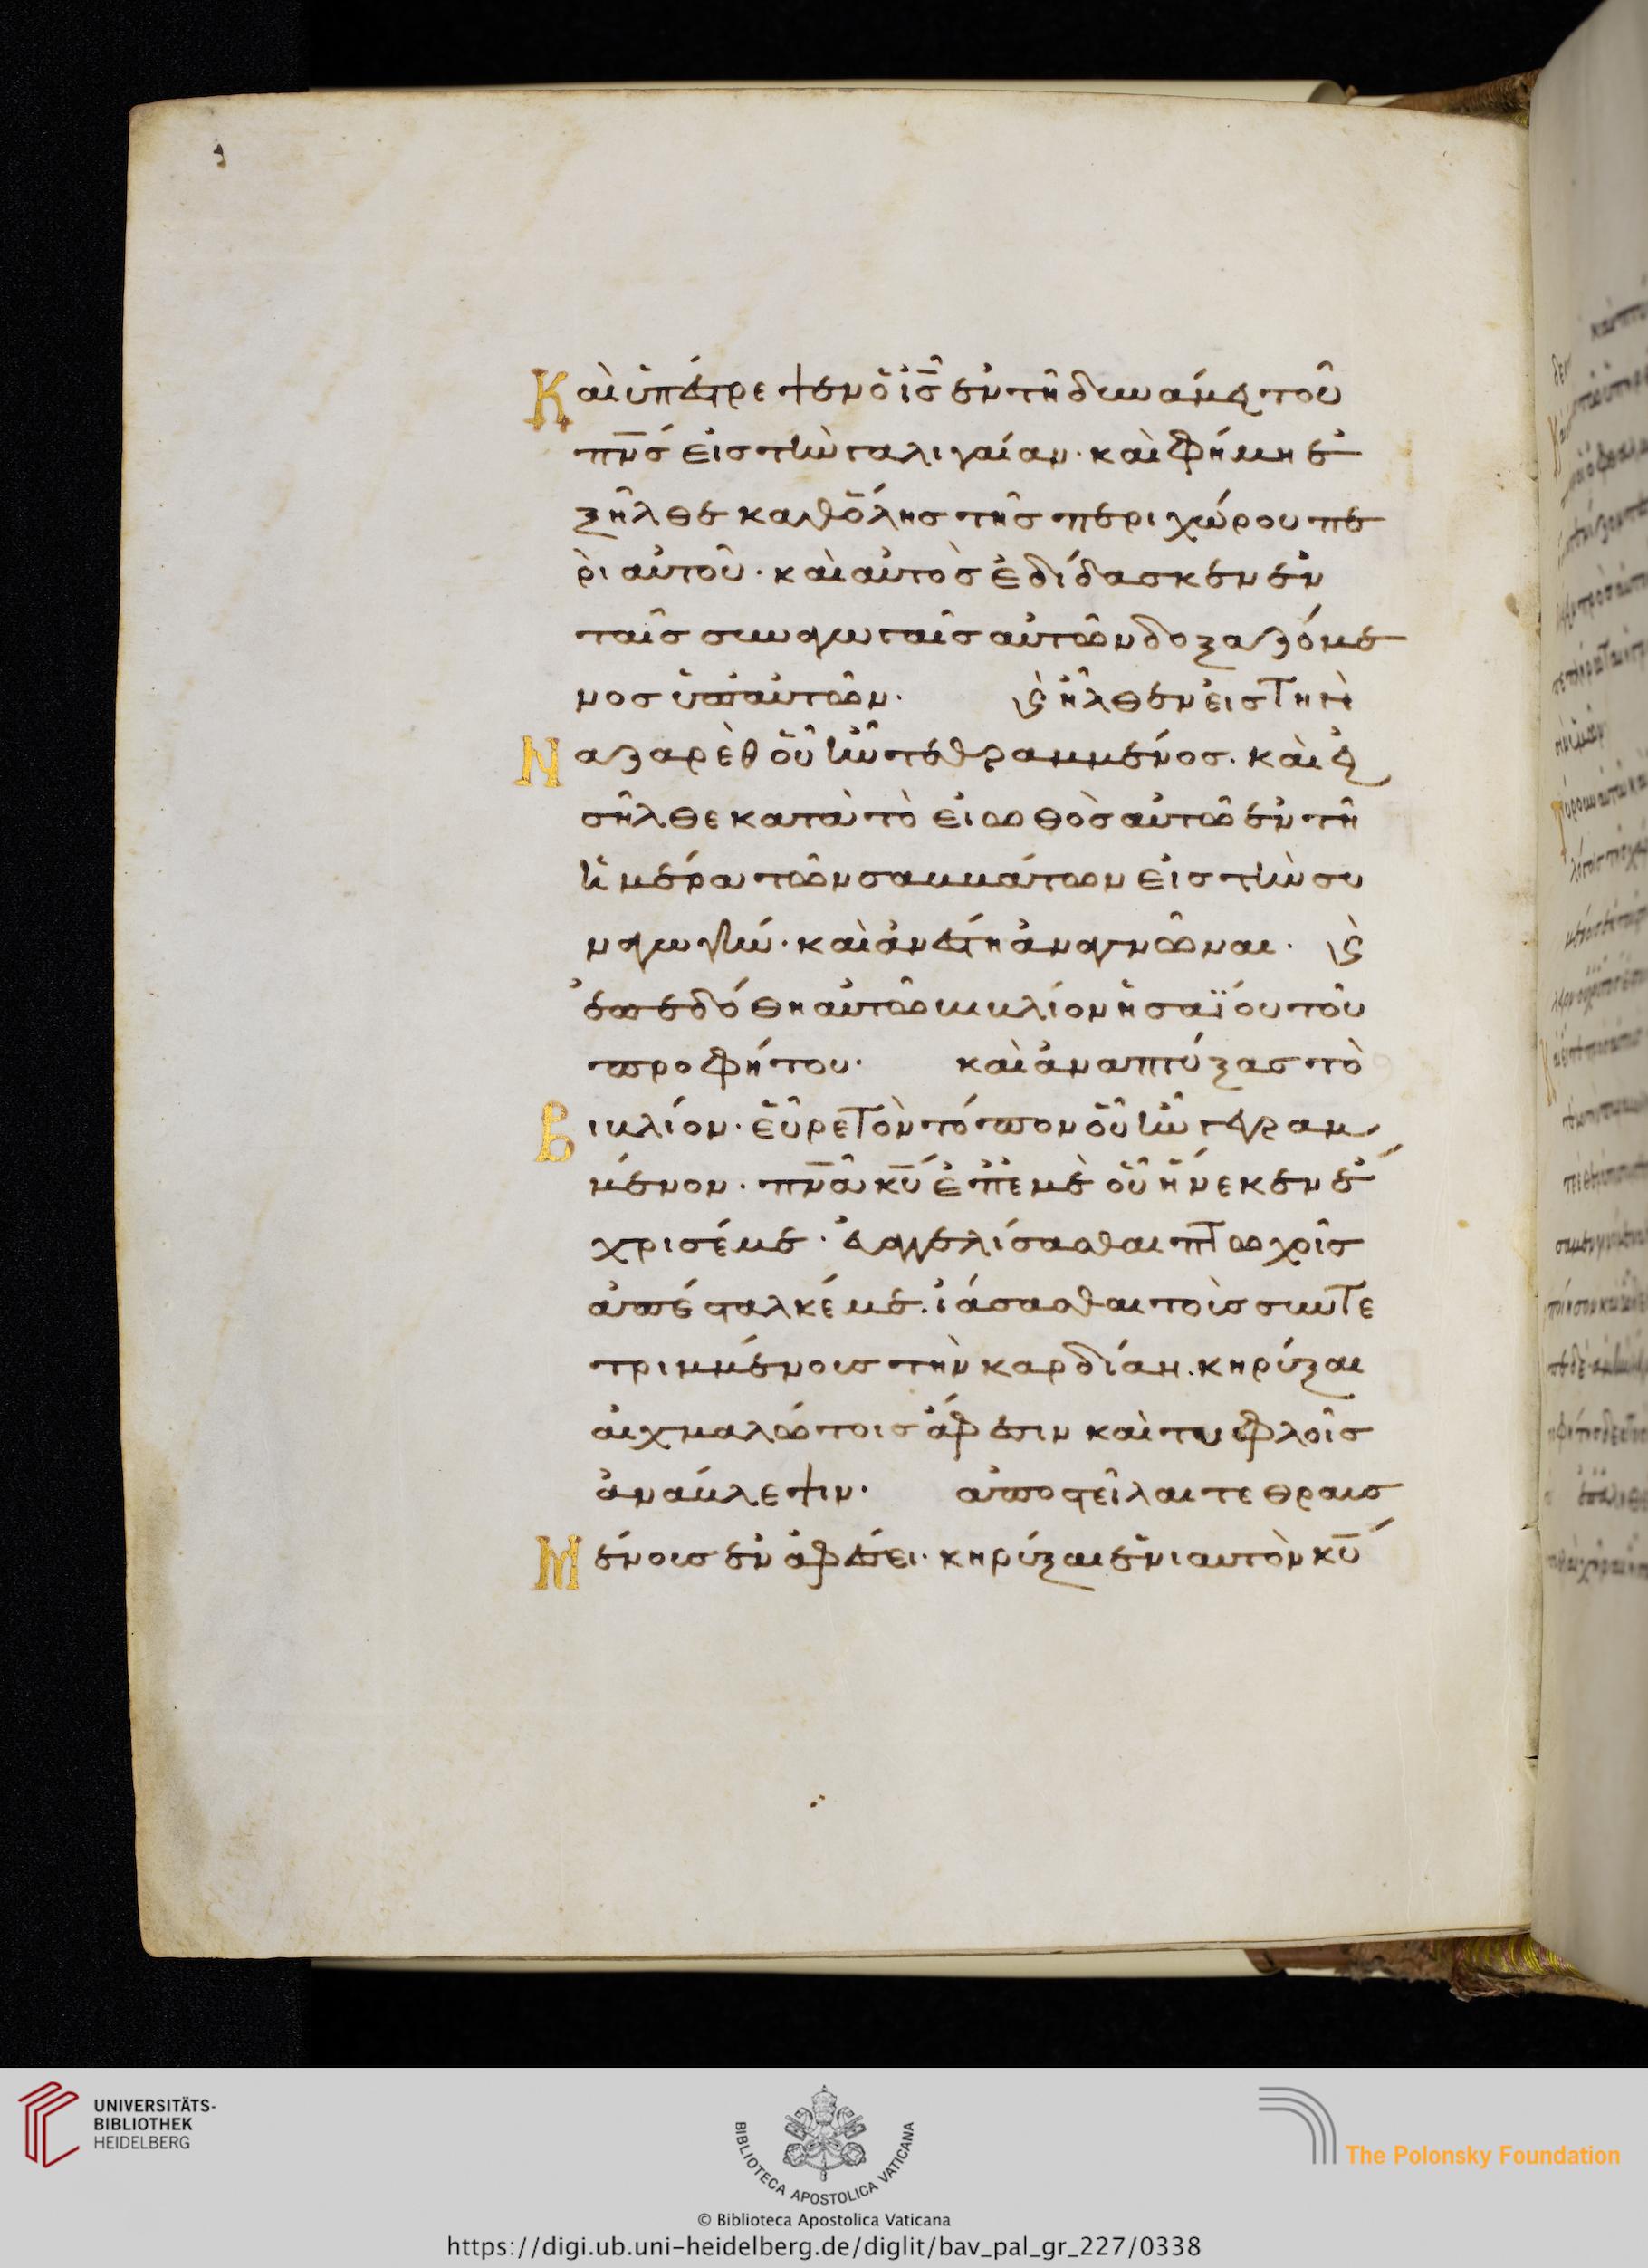 Καὶ ὑπέστρεψεν ὁ ἰς̅ ἐν τῆ δυνάμει τοῦ
πν̅ς εἰς τὴν γαλιλαίαν· καὶ φήμη ἐ
ξῆλθε καθ' ὅλης τῆς περιχώρου πε
ρὶ αὐτοῦ· καὶ αὐτὸς ἐδίδασκεν ἐν
ταῖς συναγωγαῖς αὐτῶν δοξαζόμε
νος ὑπ' αὐτῶν· ϗ ἦλθεν εἰς τὴν
Ναζαρὲθ οὗ ἦν τεθραμμένος· καὶ εἰ
σῆλθε κατὰ τὸ εἰωθὸς αὐτῶ ἐν τῆ
ἡμέρα τῶν σαββάτων εἰς τὴν συ
ναγωγήν· καὶ ἀνέστη ἀναγνῶναι· ϗ
ἐπεδόθη αὐτῶ βιβλίον ἡσαΐου τοῦ
προφήτου· καὶ ἀναπτύξας τὸ
Βιβλίον· εὗρε τὸν τόπον οὗ ἦν γεγραμ
μένον· πν̅α κυ̅ ἐπ' ἐμὲ οὗ εἵνεκεν ἔ
χρισέ με· εὐαγγελίσασθαι πτωχοῖς
ἀπέσταλκέ με· ἰάσασθαι τοὺς συντε
τριμμένους τὴν καρδίαν· κηρύξαι
αἰχμαλώτοις ἄφεσιν καὶ τυφλοῖς
ἀνάβλεψιν· ἀποστεῖλαι τεθραυσ
Μένους ἐν ἀφέσει· κηρύξαι ἐνιαυτὸν κυ̅
UNIVERSITÄTS-
BIBLIOTHEK
HEIDELBERG
BIBLIOTECA APOSTOLICA VATICANA
The Polonsky Foundation
© Biblioteca Apostolica Vaticana
https://digi.ub.uni-heidelberg.de/diglit/bav_pal_gr_227/0338